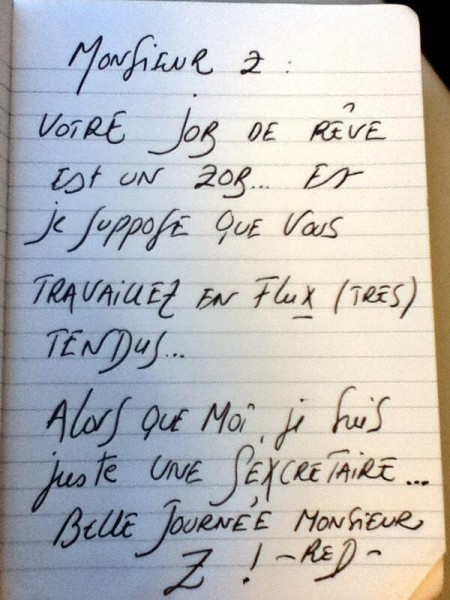 Monsieur Z :
VOTRE JOB DE RÊVE
EST UN ZOB... ET
je suppose QUE VOUS
TRAVAILLEZ EN FLUX (TRES)
TENDUS...
Alors QUE MOI, je suis
juste UNE SEXCRETAIRE...
BELLE JOURNÉE MONSIEUR
Z ! -RED-